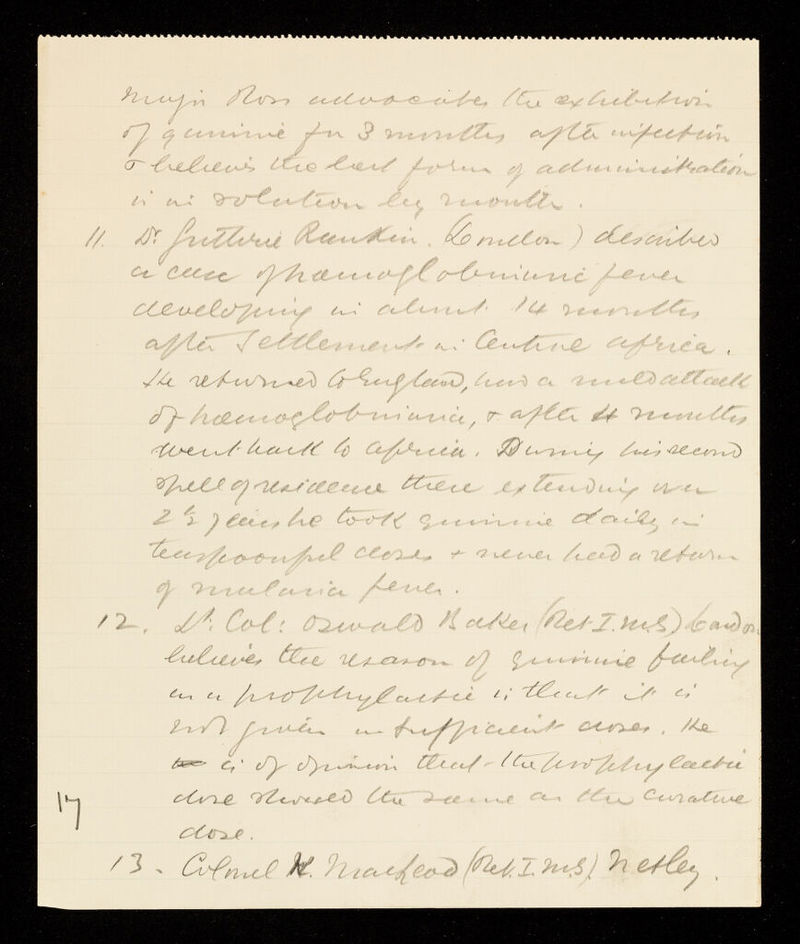 Major Ross advocates the exhibition
of quinine for 3 months after infection
& believes the best form of administration
is in solution by mouth.
11. Dr. Guthrie Rankin. (London) describes
a case of hæmoglobinuric fever
developing in about 14 months
after settlement in Central Africa.
He returned to England, had a mild attack
of hæmoglobinuria, & after 4 months
went back to Africa. During his second
spell of residence there extending over
2½ years he took quinine daily in
teaspoonful doses & never had a return
of malaria fever.
12. Lt. Col: Oswald Baker (Ret I.M.S) London
believes the reason of quinine failing
as a prophylactic is that it is
not given in sufficient doses. He
is of opinion that the prophylactic
dose should the same as the curative
dose.
17
13. Colonel K. MacLeod (Ret. I.M.S). Netley.